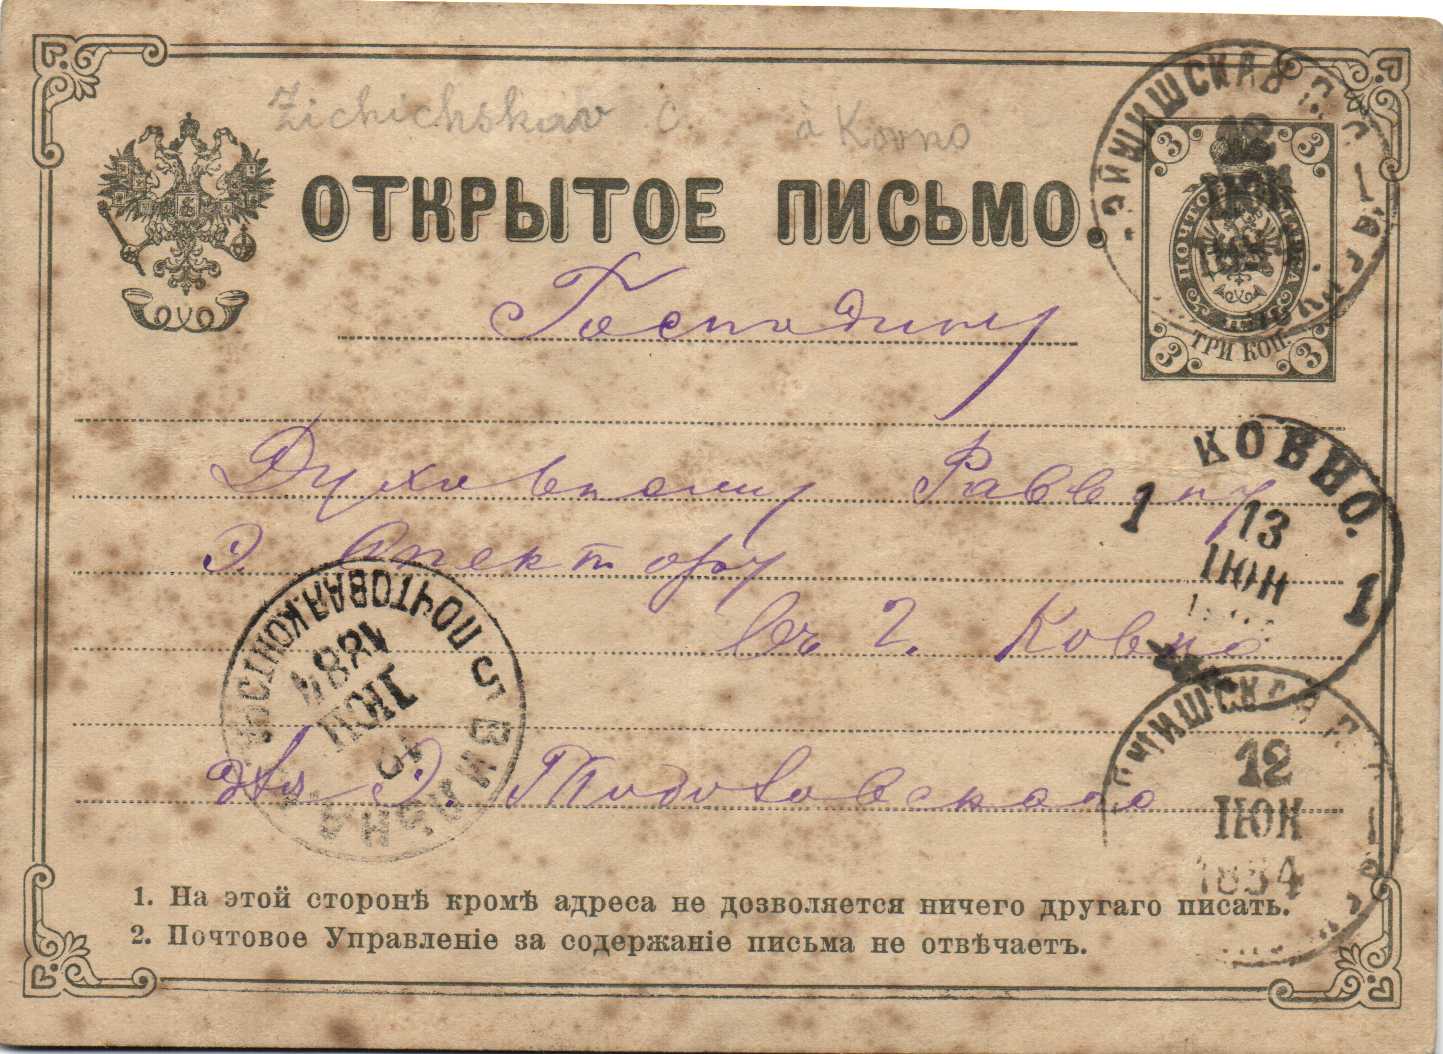 Zichichskav C. à Kovno
ОТКРЫТОЕ ПИСЬМО.
3 3
ПОЧТОВАЯ МАРКА
ТРИ КОП.
3 3
12
ІЮН
Господину
Духовному Раввину
Э. Спектору
въ г. Ковно
для Э.
КОВНО.
1 13 1
ІЮН
ВИЛЬНА
5 ПОЧТОВАЯ КОН
ІЮН
1884
12
ІЮН
1884
1. На этой сторонѣ кромѣ адреса не дозволяется ничего другаго писать.
2. Почтовое Управленіе за содержаніе письма не отвѣчаетъ.